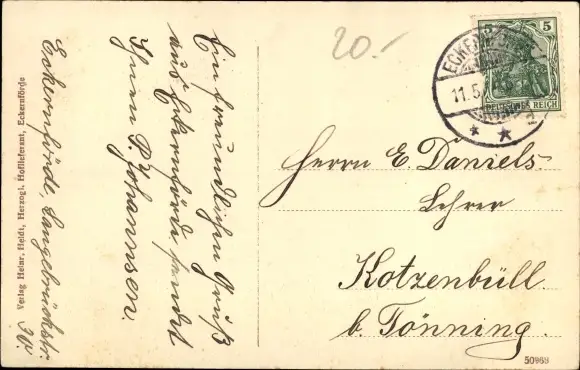 Ein freundlichen Gruß
aus Eckernförde sendet
Ihnen P. Johannsen
Eckernförde, Langebrückstr.
30.
Verlag Heinr. Heldt, Herzogl. Hoflieferant, Eckernförde
20.-
5
DEUTSCHES REICH
ECKERNFÖRDE
11.5.
Herrn E. Daniels
Lehrer
Kotzenbüll
b. Tönning.
50968